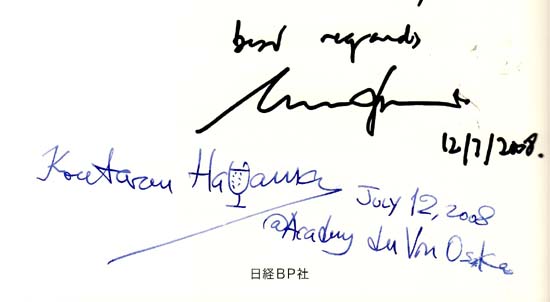 best regards
12/7/2008.
Koutarou
July 12, 2008
@Academy du Vin Osaka
日経BP社